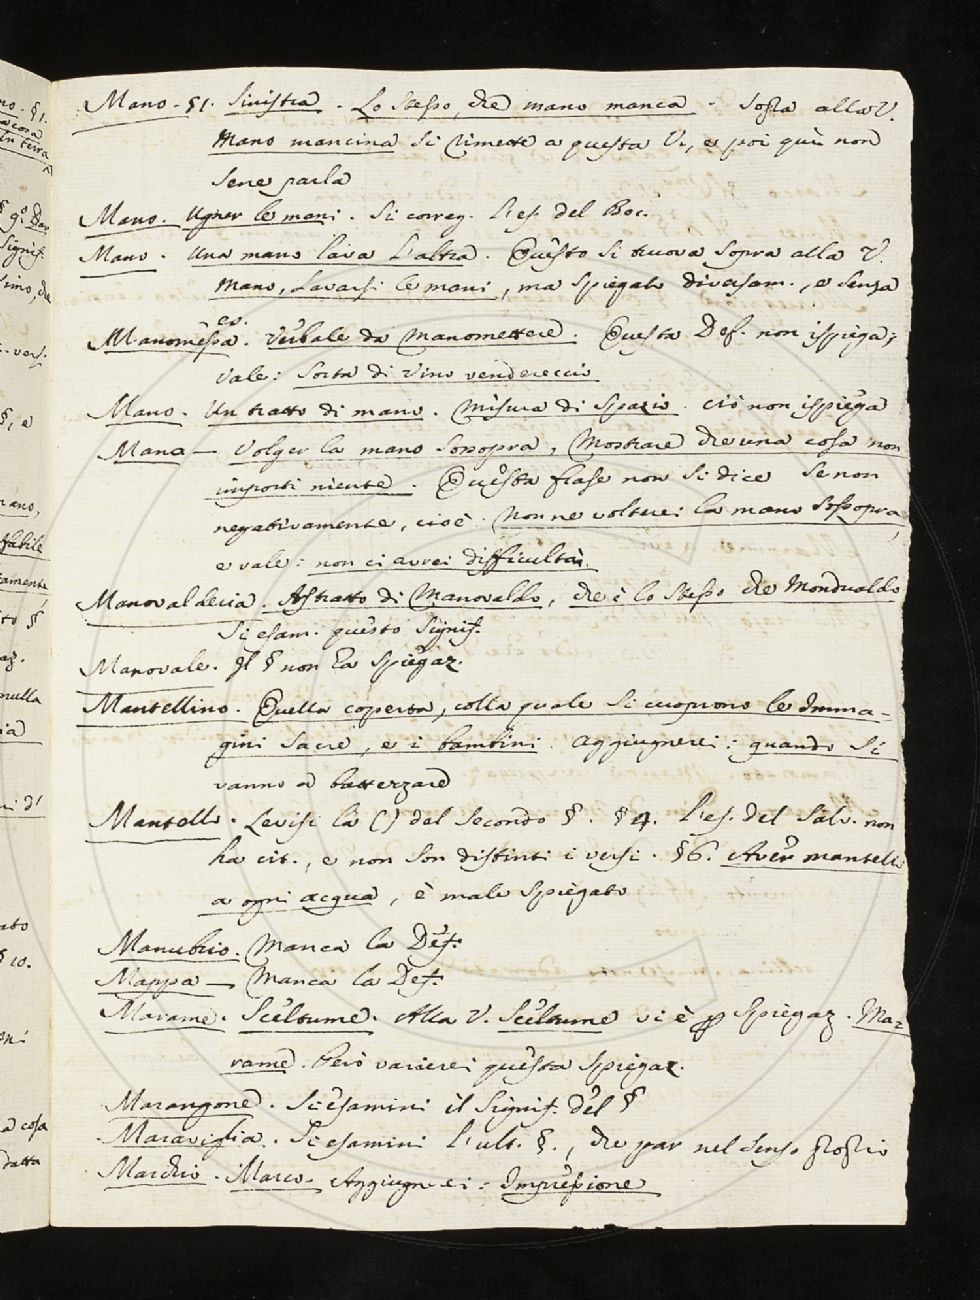 no. §1.
a cosa
in terra
§ 9.° Dar
Signif.
simo, che
- vers.
§, e
mano,
stabile
camente
to §
az.
nulla
ia
ni d'
ato
§ 10.
oni
a cosa
datta
Mano. §1. Sinistra. Lo stesso, che mano manca. Sopra alla V.
Mano mancina si rimette a questa V., e poi qui non
sene parla
Mano. Ugner le mani. Si correg. l'es. del Boc.
Mano. Una mano lava l'altra. Questo si truova sopra alla V.
Mano, Lavarsi le mani, ma spiegato diversam., e senza
es.
Manomessa. Verbale da Manomettere. Questa Def. non ispiega;
vale: Sorta di vino vendereccio
Mano. Un tratto di mano. Misura di Spazio. ciò non ispiega
Mano — Volger la mano sossopra, Mostrare che una cosa non
importi niente. Questa frase non si dice se non
negativamente, cioè: Non ne volterei la mano sossopra,
e vale: non ci avrei difficultà.
Manovalderia. Astratto di Manovaldo, che è lo stesso che Mondualdo
Si esam. questo signif.
Manovale. Il § non ha spiegaz.
Mantellino. Quella coperta, colla quale si cuoprono le Imma-
gini sacre, e i bambini. aggiugnerei: quando si
vanno a battezzare
Mantello. Levisi la () del secondo §. §4. L'es. del Salv. non
ha cit., e non son distinti i versi. §6. Aver mantello
a ogni acqua, è male spiegato
Manubrio. Manca la Def.
Mappa — Manca la Def.
Marame. Sceltume. Alla V. Sceltume vi è p Spiegaz. Ma-
rame. Però varierei questa spiegaz.
Marangone. Si esamini il signif. del §
Maraviglia. Si esamini l'ult. §., che par nel senso proprio
Marchio. Marco. Aggiugnerei: Impressione